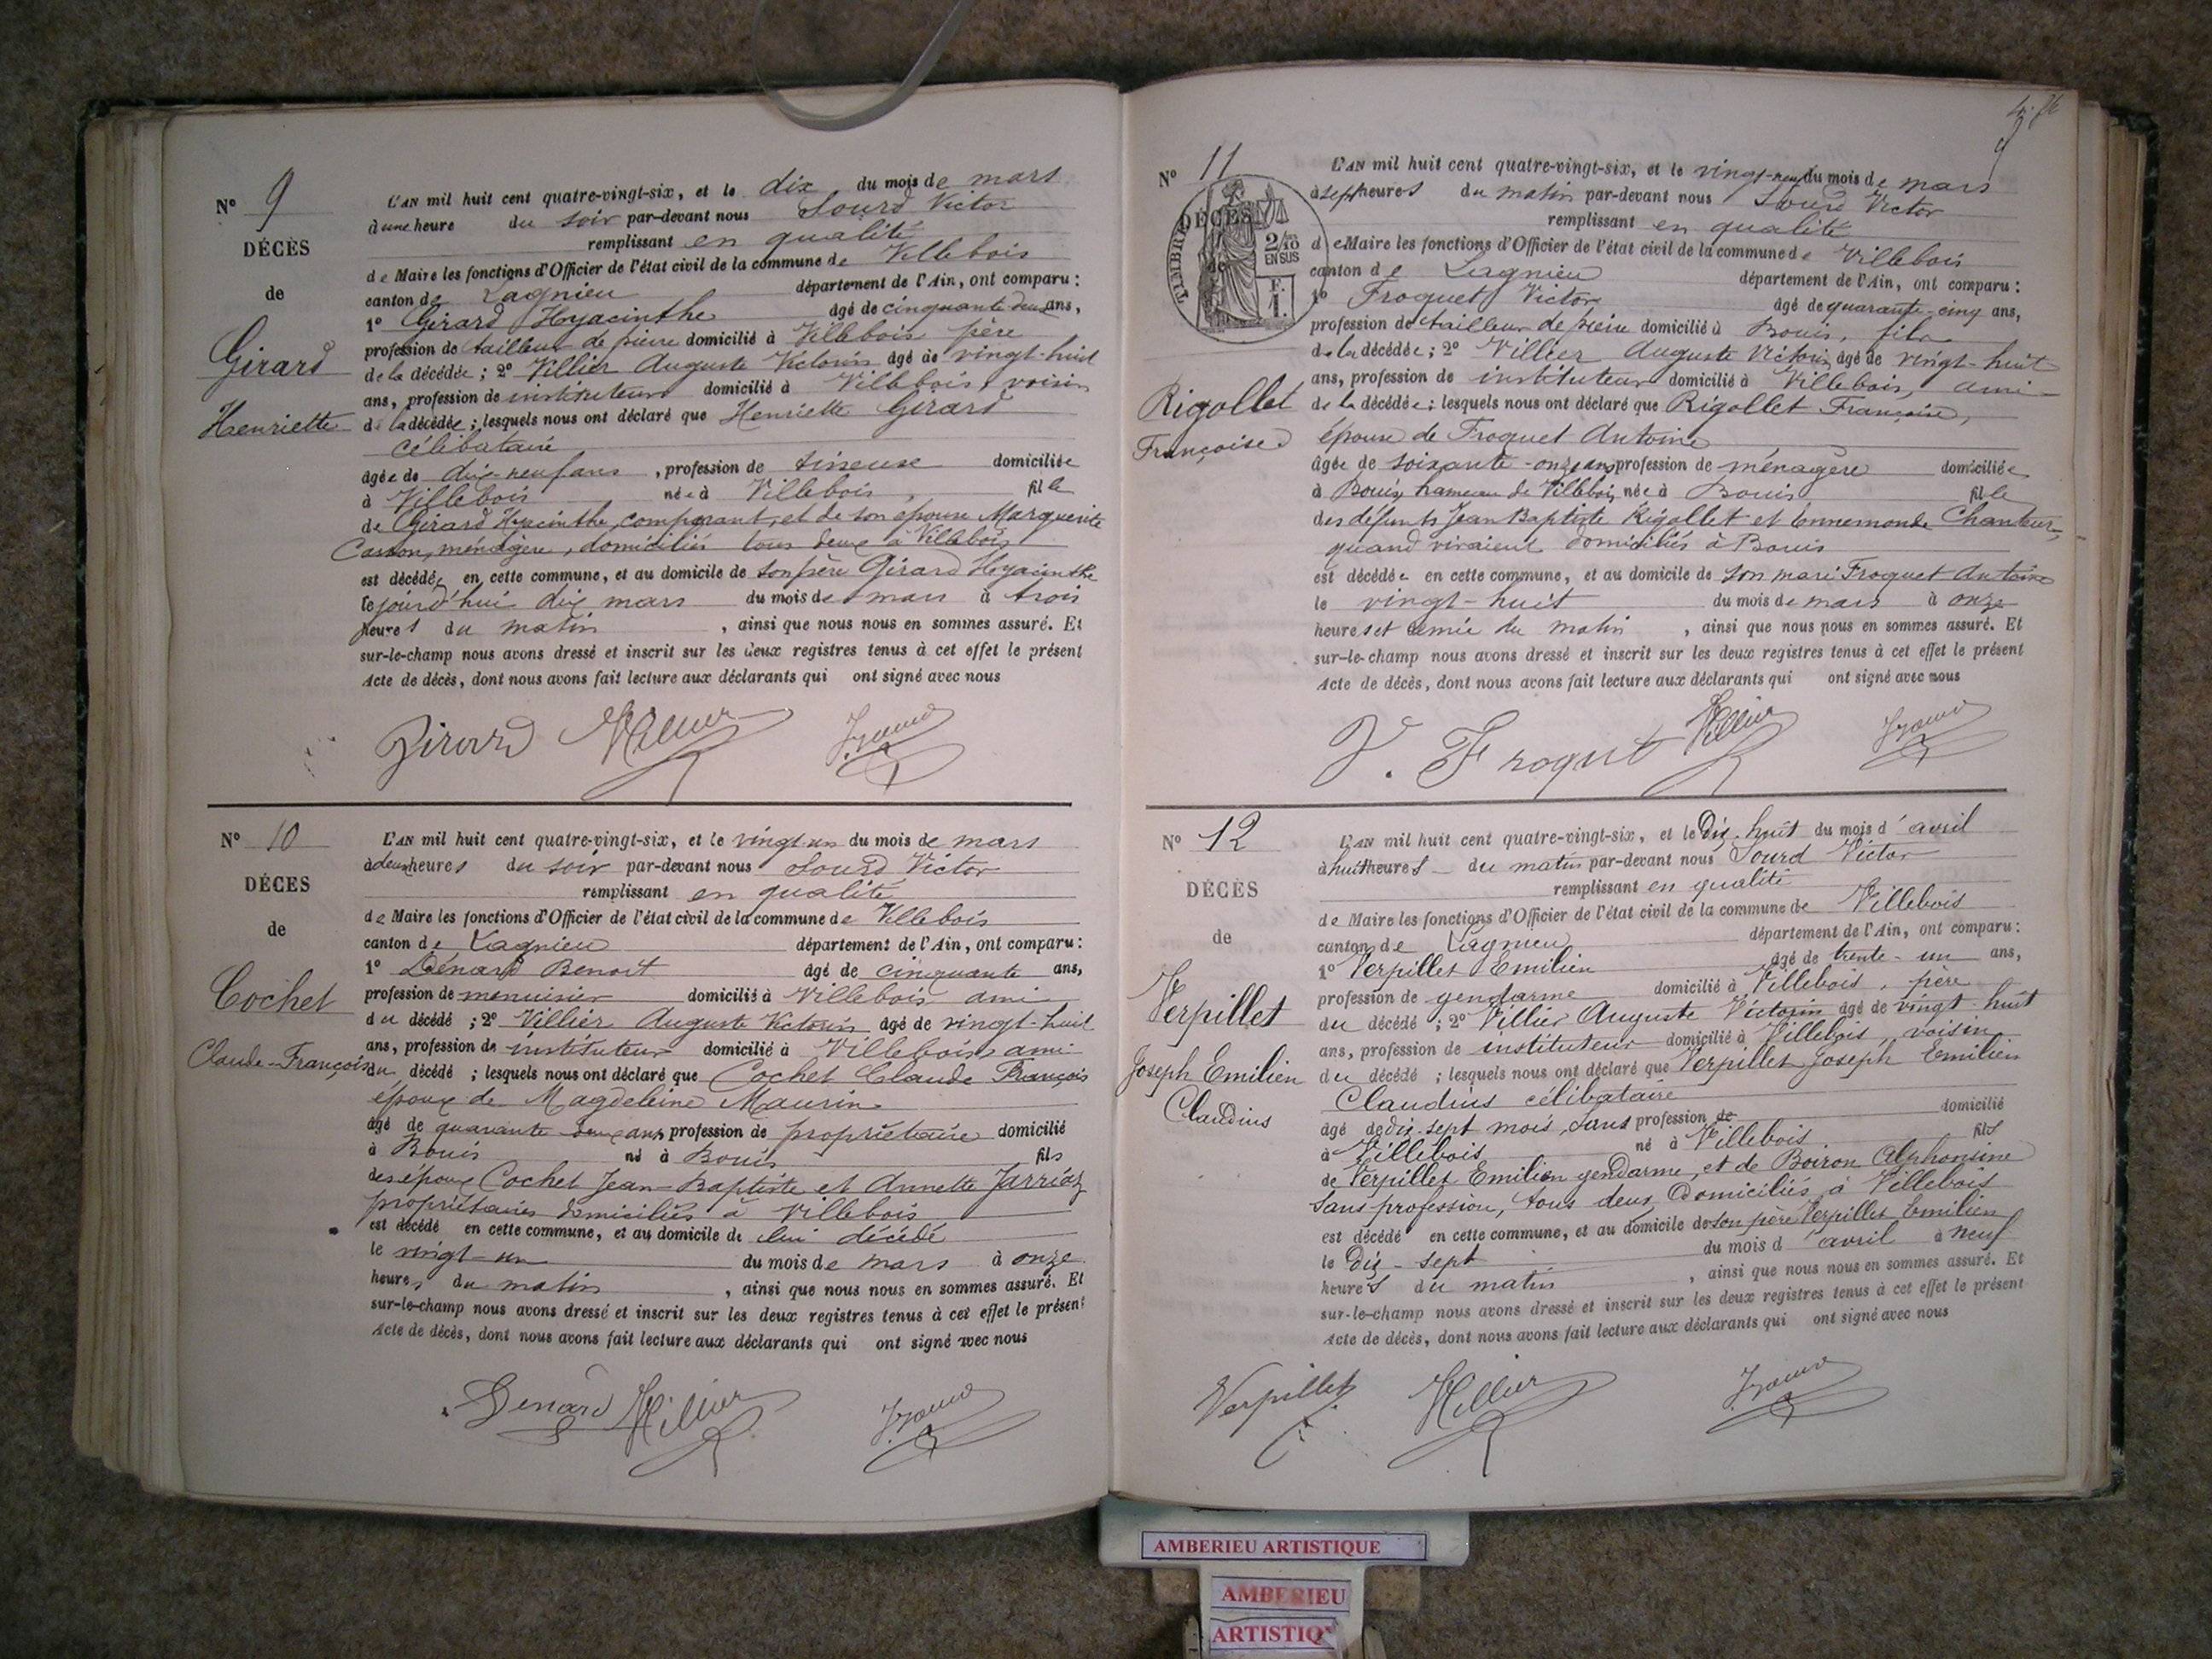 N° 9
DÉCÈS
de
Girard
Henriette
L'AN mil huit cent quatre-vingt-six, et le dix du mois de mars
à une heure du soir par-devant nous Sourd Victor
remplissant en qualité
de Maire les fonctions d'Officier de l'état civil de la commune de Villebois
canton de Lagnieu département de l'Ain, ont comparu :
1° Girard Hyacinthe âgé de cinquante deux ans,
profession de tailleur de pierre domicilié à Villebois père
de la décédée ; 2° Villier Auguste Victorin âgé de vingt-huit
ans, profession de instituteur domicilié à Villebois, voisin
de la décédée ; lesquels nous ont déclaré que Henriette Girard
célibataire
âgée de dix-neuf ans, profession de tisseuse domiciliée
à Villebois née à Villebois, fille
de Girard Hyacinthe, comparant, et de son épouse Marguerite
Casson, ménagère, domiciliés tous deux à Villebois
est décédée en cette commune, et au domicile de son père Girard Hyacinthe
le jourd'hui dix mars du mois de mars à trois
heures du matin, ainsi que nous nous en sommes assuré. Et
sur-le-champ nous avons dressé et inscrit sur les deux registres tenus à cet effet le présent
Acte de décès, dont nous avons fait lecture aux déclarants qui ont signé avec nous
Girard Villier
N° 10
DÉCES
de
Cochet
Claude-François
L'AN mil huit cent quatre-vingt-six, et le vingt un du mois de mars
à deux heures du soir par-devant nous Sourd Victor
remplissant en qualité
de Maire les fonctions d'Officier de l'état civil de la commune de Villebois
canton de Lagnieu département de l'Ain, ont comparu :
1° Dénard Benoit âgé de cinquante ans,
profession de menuisier domicilié à Villebois ami
du décédé ; 2° Villier Auguste Victorin âgé de vingt-huit
ans, profession de instituteur domicilié à Villebois, ami
du décédé ; lesquels nous ont déclaré que Cochet Claude François
époux de Magdeleine Maurin
âgé de quarante deux ans, profession de propriétaire domicilié
à Bouis né à Bouis fils
des époux Cochet Jean-Baptiste et Annette Jarriaz
propriétaires domiciliés à Villebois
est décédé en cette commune, et au domicile de lui décédé
le vingt-un du mois de mars à onze
heures du matin, ainsi que nous nous en sommes assuré. Et
sur-le-champ nous avons dressé et inscrit sur les deux registres tenus à cet effet le présent
Acte de décès, dont nous avons fait lecture aux déclarants qui ont signé avec nous
Denard Villier
N° 11
DÉCÈS
de
TIMBRE
2/10
EN SUS
F.
1.
Rigollet
Françoise
L'AN mil huit cent quatre-vingt-six, et le vingt-neuf du mois de mars
à sept heures du matin par-devant nous Sourd Victor
remplissant en qualité
de Maire les fonctions d'Officier de l'état civil de la commune de Villebois
canton de Lagnieu département de l'Ain, ont comparu :
1° Froquet Victor âgé de quarante-cinq ans,
profession de tailleur de pierre domicilié à Bouis, fils
de la décédée ; 2° Villier Auguste Victorin âgé de vingt-huit
ans, profession de instituteur domicilié à Villebois, ami
de la décédée ; lesquels nous ont déclaré que Rigollet Françoise,
épouse de Froquet Antoine
âgée de soixante-onze ans, profession de ménagère domiciliée
à Bouis, hameau de Villebois, née à Bouis fille
des défunts Jean Baptiste Rigollet et Ennemonde Chanteur
quand vivaient domiciliés à Bouis
est décédée en cette commune, et au domicile de son mari Froquet Antoine
le vingt-huit du mois de mars à onze
heures et demie du matin, ainsi que nous nous en sommes assuré. Et
sur-le-champ nous avons dressé et inscrit sur les deux registres tenus à cet effet le présent
Acte de décès, dont nous avons fait lecture aux déclarants qui ont signé avec nous
V. Froquet Villier
N° 12
DÉCÈS
de
Verpillet
Joseph Emilien
Claudius
L'AN mil huit cent quatre-vingt-six, et le Dix-huit du mois d'avril
à huit heures du matin par-devant nous Sourd Victor
remplissant en qualité
de Maire les fonctions d'Officier de l'état civil de la commune de Villebois
canton de Lagnieu département de l'Ain, ont comparu :
1° Verpillet Emilien âgé de trente-un ans,
profession de gendarme domicilié à Villebois, père
du décédé ; 2° Villier Auguste Victorin âgé de vingt huit
ans, profession de instituteur domicilié à Villebois, voisin
du décédé ; lesquels nous ont déclaré que Verpillet Joseph Emilien
Claudius célibataire
âgé de dix-sept mois, sans profession de domicilié
à Villebois né à Villebois fils
de Verpillet Emilien gendarme, et de Boiron Alphonsine
sans profession, tous deux domiciliés à Villebois
est décédé en cette commune, et au domicile de son père Verpillet Emilien
le Dix-sept du mois d'avril à neuf
heures du matin, ainsi que nous nous en sommes assuré. Et
sur-le-champ nous avons dressé et inscrit sur les deux registres tenus à cet effet le présent
Acte de décès, dont nous avons fait lecture aux déclarants qui ont signé avec nous
Verpillet Villier
AMBERIEU ARTISTIQUE
AMBERIEU
ARTISTIQ